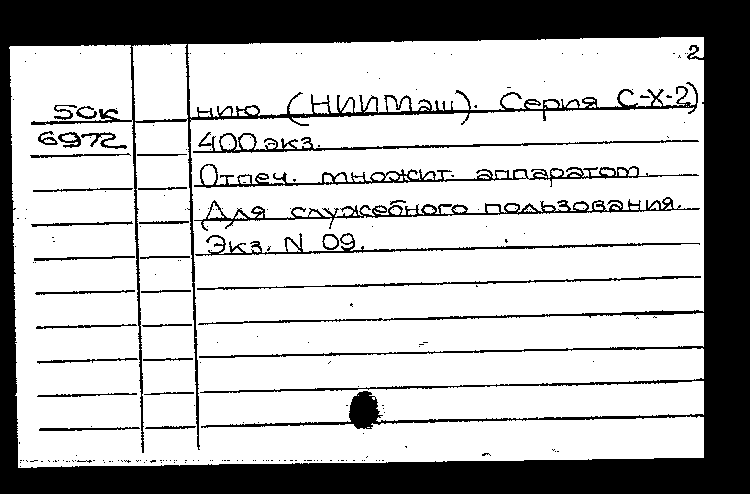 2
50к нию (НИИМаш). Серия С-Х-2).
6972 400 экз.
Отпеч. множит. аппаратом.
Для служебного пользования.
Экз. N 09.